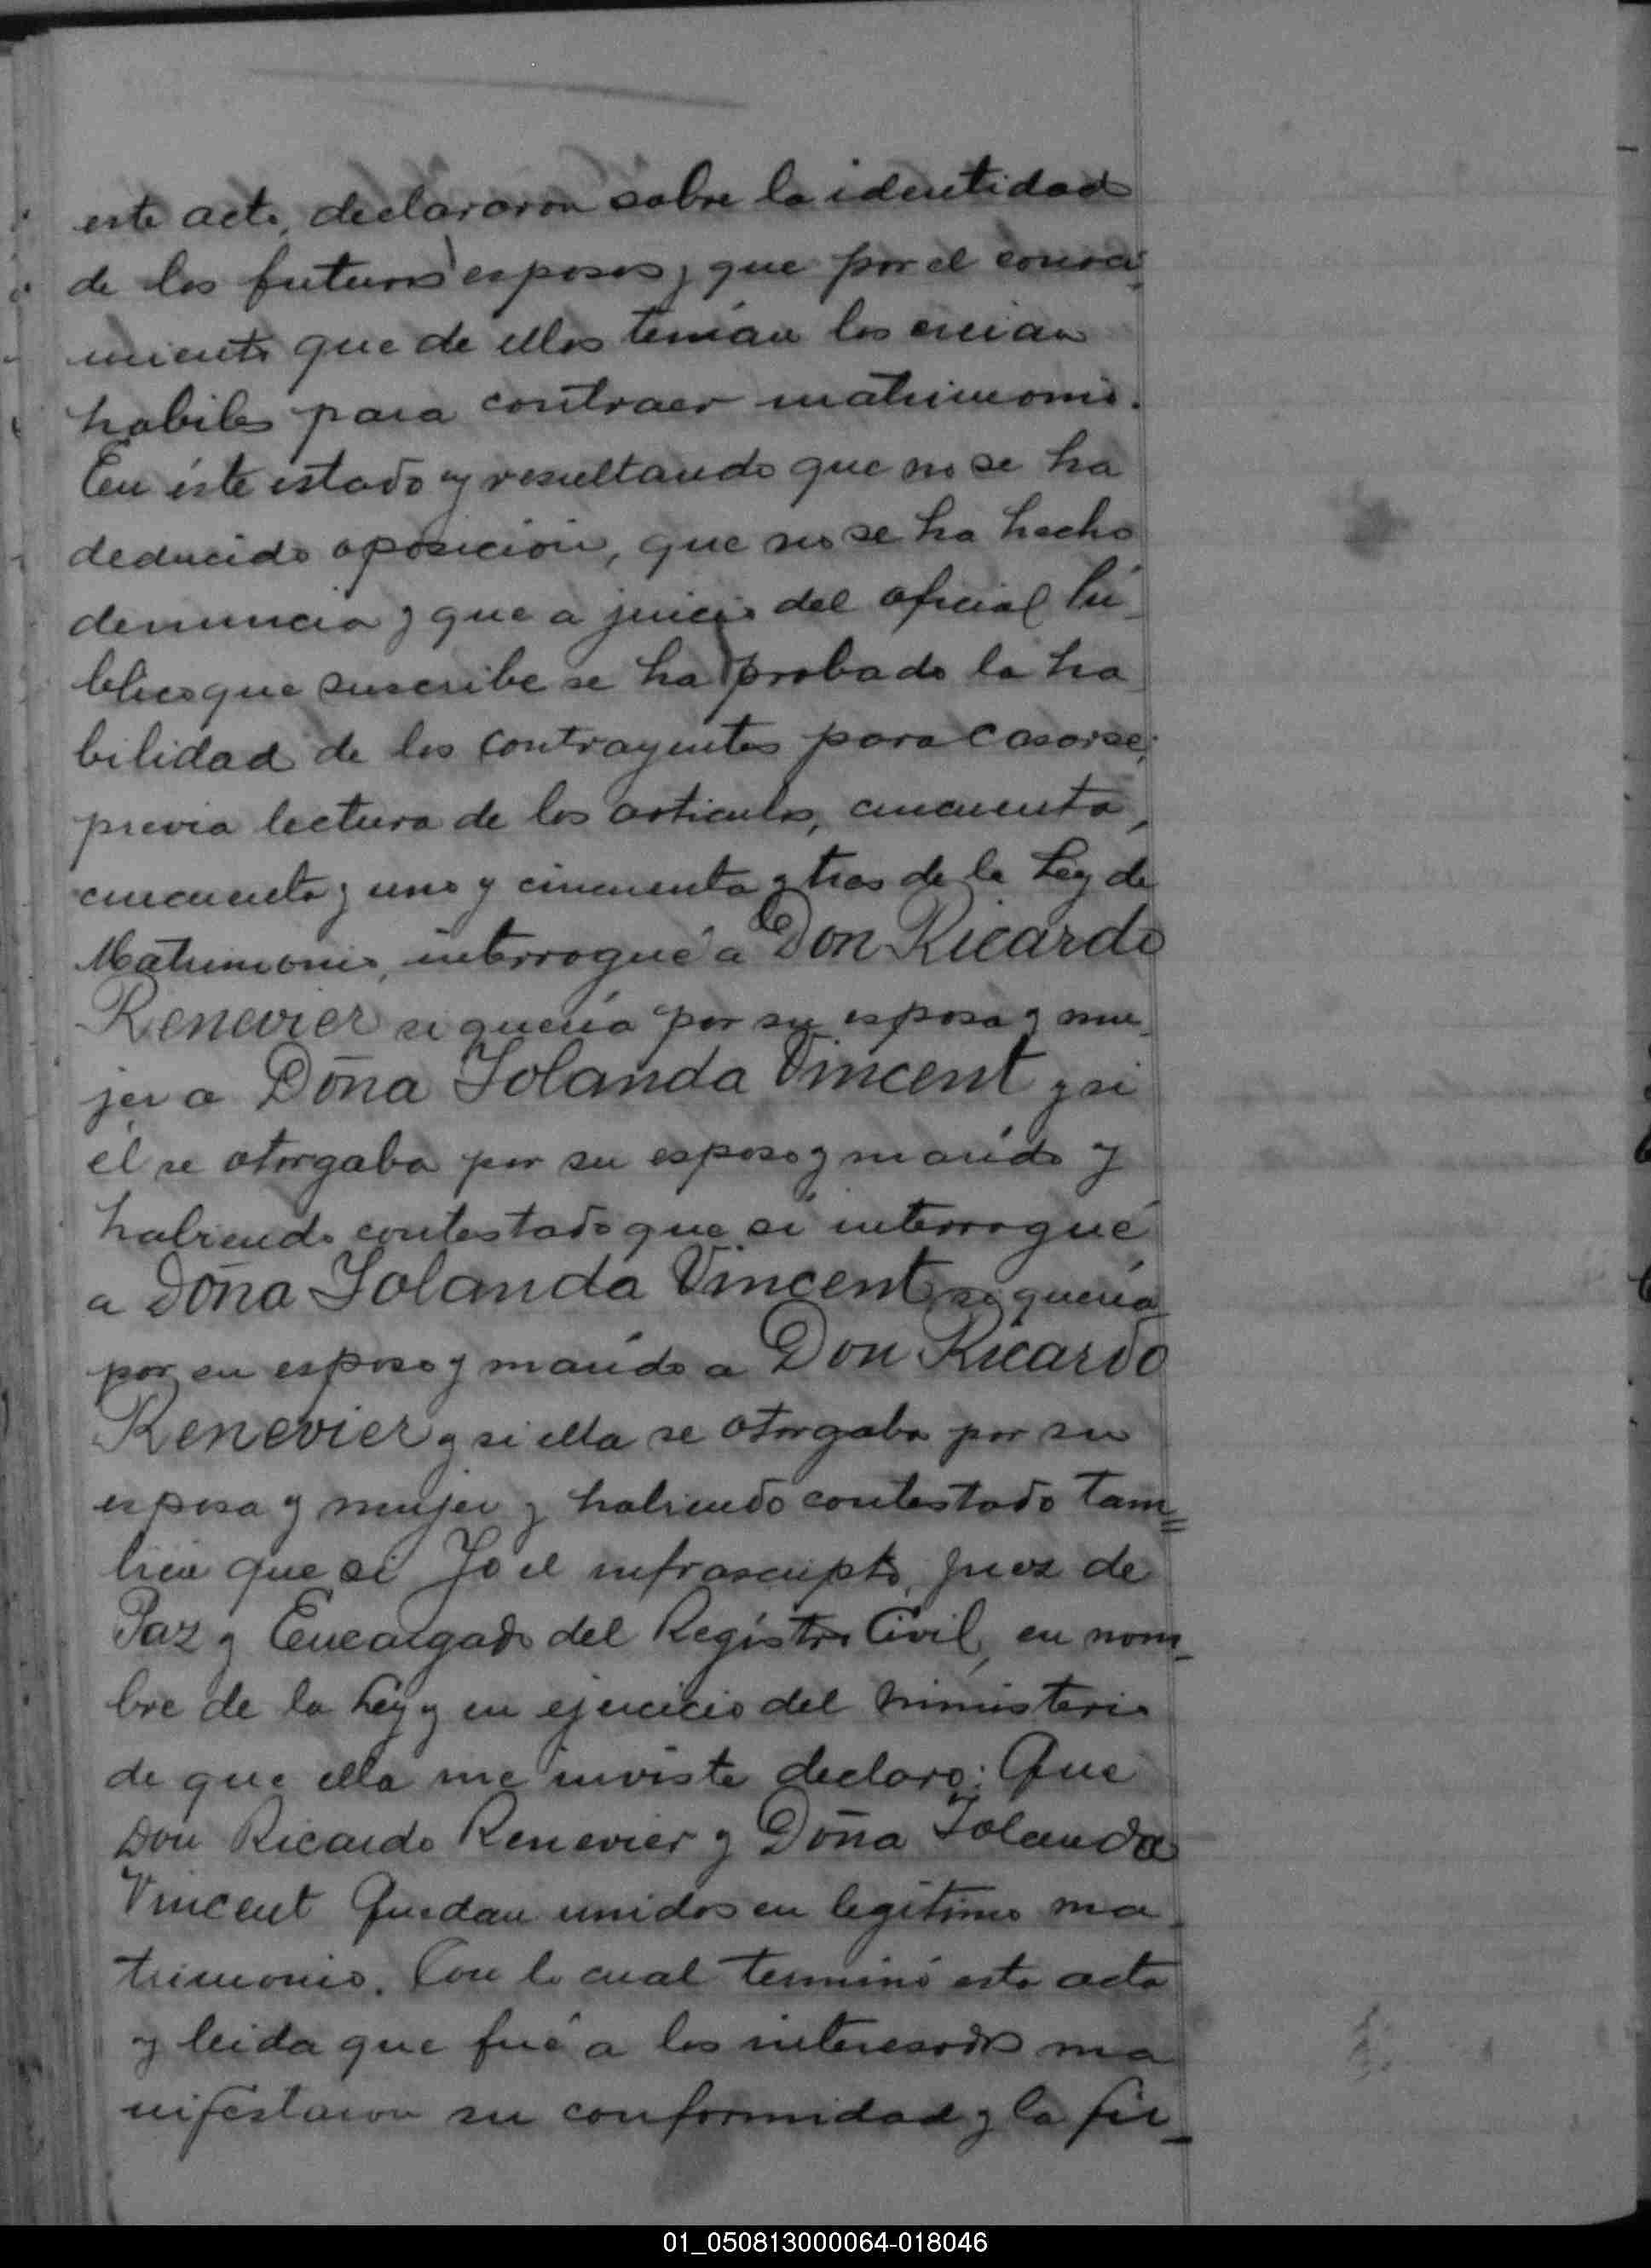 este acto, declararon sobre la identidad
de los futuros esposos y que por el conoci-
miento que de ellos tenían los creian
habiles para contraer matrimonio.
En éste estado y resultando que no se ha
deducido oposición, que no se ha hecho
denuncia y que a juicio del oficial Pú-
blico que suscribe se ha probado la ha-
bilidad de los contrayentes para casarse;
previa lectura de los articulos, cincuenta,
cincuenta y uno y cincuenta y tres de la Ley de
Matrimonio, interrogué a Don Ricardo
Renevier si quería por su esposa y mu-
jer a Doña Iolanda Vincent y si
él se otorgaba por su esposo y marido y
habiendo contestado que si interrogué
a Doña Iolanda Vincent si quería
por su esposo y marido a Don Ricardo
Renevier y si ella se otorgaba por su
esposa y mujer y habiendo contestado tam=
bien que si Yo el infrascripto, Juez de
Paz y Encargado del Registro Civil, en nom-
bre de la Ley y en ejercicio del ministerio
de que ella me inviste declaro: Que
Don Ricardo Renevier y Doña Iolanda
Vincent Quedan unidos en legítimo ma-
trimonio. Con lo cual terminó esta acta
y leida que fué a los interesados ma
nifestaron su conformidad y la fir-
01_050813000064-018046